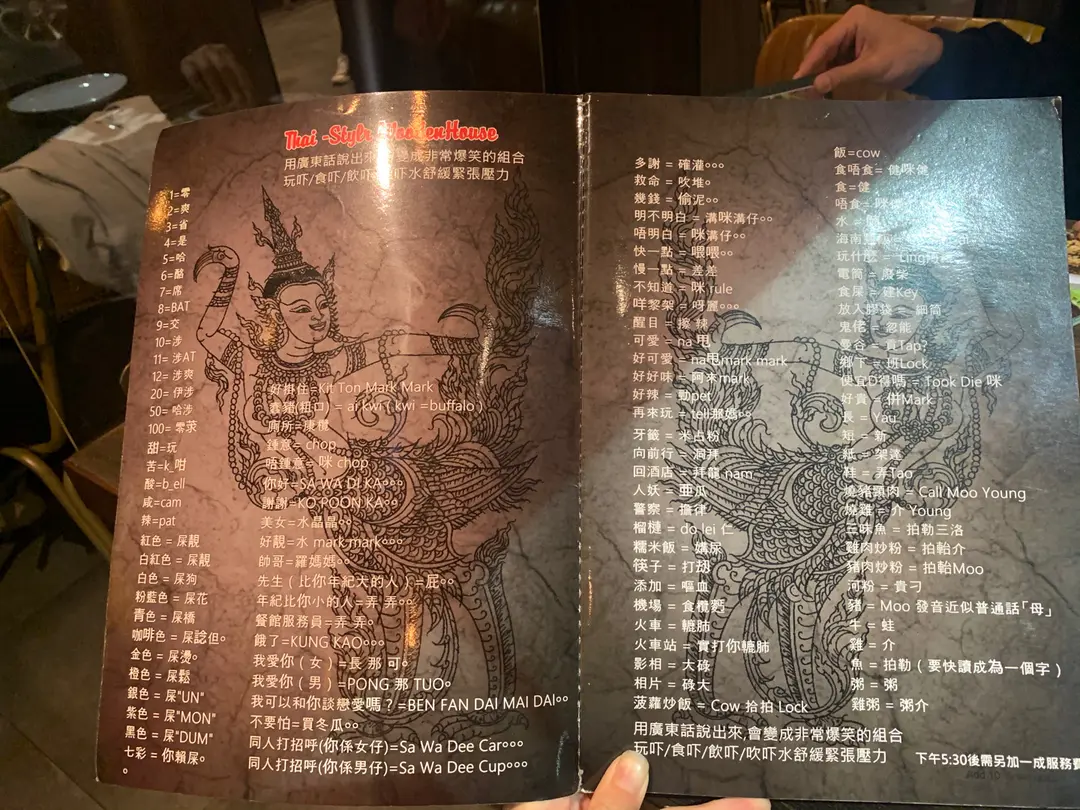 Thai -Style WoodenHouse
用廣東話說出來,會變成非常爆笑的組合
玩吓/食吓/飲吓/吹吓水舒緩緊張壓力
1=零
2=爽
3=省
4=是
5=哈
6=酪
7=席
8=BAT
9=交
10=涉
11= 涉AT
12= 涉爽
20= 伊涉
50= 哈涉
100= 零茨
甜=玩
苦=k_咁
酸=b_ell
咸=cam
辣=pat
紅色 = 屎靚
白紅色 = 屎靚
白色 = 屎狗
粉藍色 = 屎花
青色 = 屎橋
咖啡色 = 屎諗但。
金色 = 屎燙。
橙色 = 屎鬆
銀色 = 屎"UN"
紫色 = 屎"MON"
黑色 = 屎"DUM"
七彩 = 你賴屎。
。
好掛住=Kit Ton Mark Mark
蠢豬(粗口) = ai kwi ( kwi =buffalo )
廁所=康欖
鍾意= chop
唔鍾意= 咪 chop
你好=SA WA DI KA。。。
謝謝=KO ROON KA。。
美女=水晶晶。。
好靚=水 mark mark。。。
帥哥=羅媽媽。。
先生 ( 比你年紀大的人 ) =屁。。
年紀比你小的人=弄 弄。。
餐館服務員=弄 弄。
餓了=KUNG KAO。。。
我愛你 ( 女 ) =長 那 可。
我愛你 ( 男 ) =PONG 那 TUO。
我可以和你談戀愛嗎 ? =BEN FAN DAI MAI DAI。。
不要怕=買冬瓜。。
同人打招呼(你係女仔)=Sa Wa Dee Car。。。
同人打招呼(你係男仔)=Sa Wa Dee Cup。。。
多謝 = 確灌。。。
救命 = 吹堆。
幾錢 = 偷泥。。
明不明白 = 溝咪溝仔。。
唔明白 = 咪溝仔。。
快一點 = 喂喂。。
慢一點 = 差差
不知道 = 咪 rule
咩黎架 = 呀厘。。。
醒目 =
可愛 = na 甩
好可愛 = na甩mark mark
好好味 = 阿來mark
好辣 = 勁pet
再來玩 = tell那媽。。
牙籤 = 米占粉
向前行 = 洞拜
回酒店 = 拜龍 nam
人妖 = 亜瓜
警察 = 擔律
榴槤 = do lei 仁
糯米飯 = 媽尿
筷子 = 打刼
添加 = 嘔血
機場 = 食欖
火車 = 轆肺
火車站 = 實打你轆肺
影相 = 大碌
相片 = 碌大
菠蘿炒飯 = Cow 拾拍 Lock
飯=cow
食唔食= 健咪健
食=健
唔食= 咪健
水 =
海南雞
玩什麽 = Ling
電筒 = 廢柴
食屎 = 建Key
放入膠袋 = 細筒
鬼佬 = 忽能
曼谷 = 貢Tap?
鄉下 = 班Lock?
便宜D得嗎 = Took Die 咪
好貴 = 併Mark
長 = Yau
短 = 新
紙 = 架達
枱 = 弄Tao
燒豬頸肉 = Call Moo Young
燒雞 = 介 Young
三味魚 = 拍勒三洛
雞肉炒粉 = 拍軩介
豬肉炒粉 = 拍軩Moo
河粉 = 貴刁
豬 = Moo 發音近似普通話「母」
牛 = 蛙
雞 = 介
魚 = 拍勒 ( 要快讀成為一個字 )
粥 = 粥
雞粥 = 粥介
用廣東話說出來,會變成非常爆笑的組合
玩吓/食吓/飲吓/吹吓水舒緩緊張壓力
下午5:30後需另加一成服務費